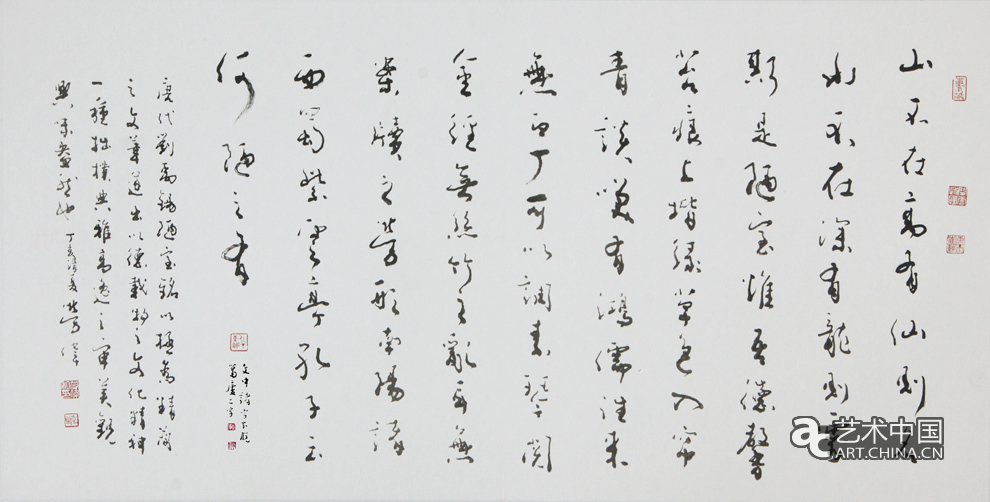 山不在高有仙則名
水不在深有龍則靈
斯是陋室惟吾德馨
苔痕上階綠草色入帘
青談笑有鴻儒往來
無白丁可以調素琴閱
金經無絲竹之亂耳無
案牘之勞形南陽諸
西蜀紫雲亭孔子云
何陋之有
文中諸字下脫
葛廬二字
唐代劉禹錫陋室銘以極為精簡
之文筆道出以德載物之文化精神
一種拙樸典雅高逸之審美觀
興味盎然也 丁亥
艺术中国
ART.CHINA.CN